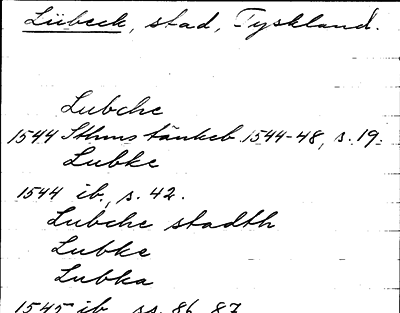 Lübeck, stad, Tyskland.
Lubche
1544 Sthms tänkeb. 1544-48, s. 19.
Lubke
1544 ib., s. 42.
Lubche stadth
Lubke
Lubka
1545 ib., ss. 86, 87